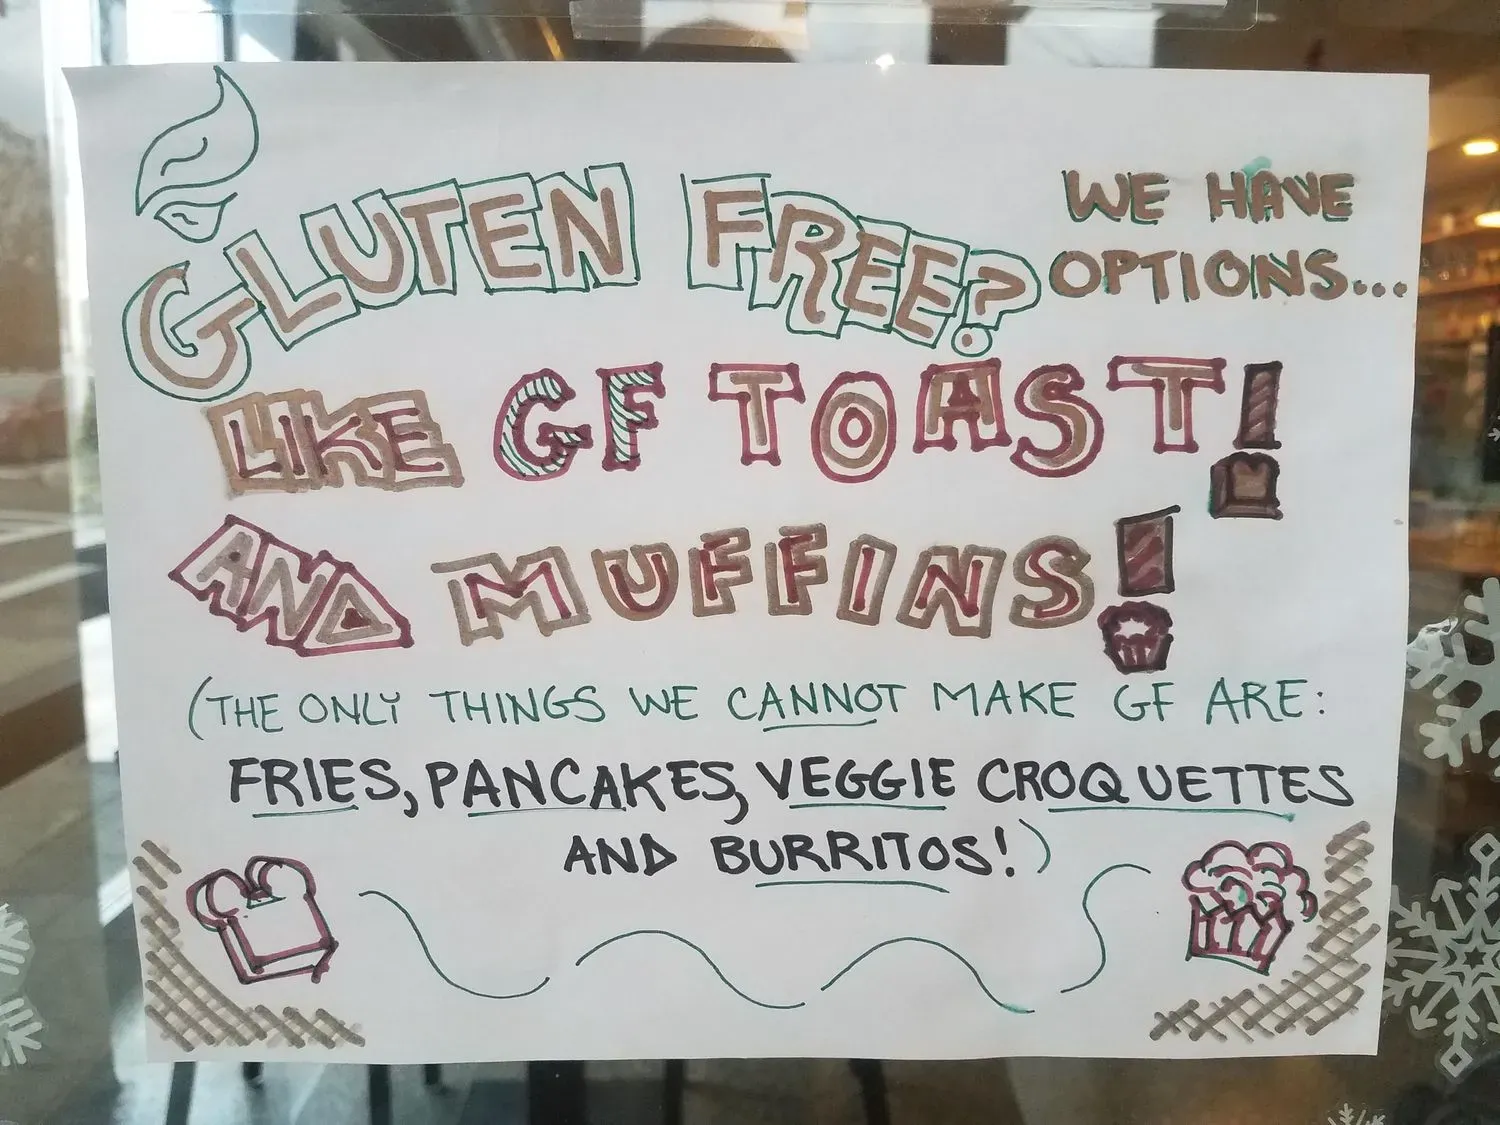 GLUTEN FREE? WE HAVE
OPTIONS...
LIKE GF TOAST!
AND MUFFINS!
(THE ONLY THINGS WE CANNOT MAKE GF ARE:
FRIES, PANCAKES, VEGGIE CROQUETTES
AND BURRITOS!)